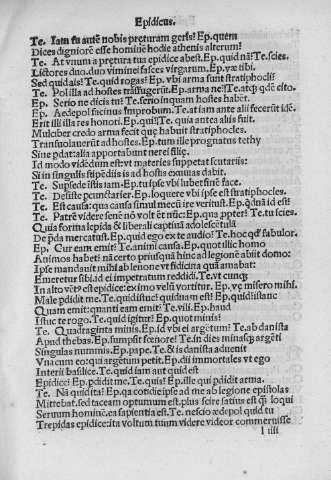 Epidicus.
Te. Iam tu autē nobis prętturam geris? Ep. quem
Dices digniorē esse hominē hodie athenis alterum?
Te. At vnum a prętura tua epidice abest. Ep. quid nā? Te. scies.
Lictores duo. duo viminei fasces virgarum. Ep. vae tibi.
Sed quid ais? Te. quid rogas? Ep. vbi arma sunt stratiphocli?
Te. Pol illa ad hostes trāsfugerūt. Ep. arma ne? Te. atq; qdē cito.
Ep. Serio ne dicis tu? Te. serio inquam hostes habēt.
Ep. Aedepol facinus improbum. Te. at iam ante alii fecerūt idē.
Erit illi illa res honori. Ep. qui? Te. quia antea aliis fuit.
Mulciber credo arma fecit que habuit stratiphocles.
Transuolauerūt ad hostes. Ep. tum ille prognatus tethy
Sine pdat: alia apportabunt nerei filię.
Id modo videdum est: vt materies suppetat scutariis:
Si in singulis stipēdiis is ad hostis exuuias dabit.
Te. Supsede istis iam. Ep. tu ipse vbi lubet finē face.
Te. Desiste pcunctarier. Ep. loquere vbi ipse est stratiphocles.
Te. Est causa: qua causa simul mecū ire veritust. Ep. qdnā id est?
Te. Patrē videre senē nō volt ēt nūc: Ep. qua ppter? Te. tu scies.
Quia forma lepida & liberali captiuā adolescētulā
De pda mercatust. Ep. quid ego ex te audio? Te. hoc qd fabulor.
Ep. Cur eam emit? Te. animi causa. Ep. quot illic homo
Animos habet? nā certo priusquā hinc ad legionē abiit domo:
Ipse mandauit mihi ab lenone vt fidicina quā amabat:
Emeretur sibi. id ei impetratum reddidi. Te. vt cunq;
In alto vēt est epidice: exim velū vortitur. Ep. vę misero mihi.
Male pdidit me. Te. quid istuc? quidnam est? Ep. quid istanc
Quam emit: quanti eam emit? Te. vili. Ep. haud
Istuc te rogo. Te. quid igitur? Ep. quot minis?
Te. Quadraginta minis. Ep. id vbi ei argētum? Te. ab danista
Apud thebas. Ep. sumpsit foenore? Te. in dies minasq; argēti
Singulas nummis. Ep. pape. Te. & is danista aduenit
Vna cum eo: qui argētum petit. Ep. dii immortales vt ego
Interii basilice. Te. quid iam aut quid est
Epidice? Ep. pdidit me. Te. quis? Ep. ille qui pdidit arma.
Te. Nā quid ita? Ep. qa cotidie ipse ad me ab legione epistolas
Mittebat. sed taceam optumum est. plus scire satius est q̃ loqui
Seruum hominē. ea sapientia est. Te. nescio ędepol quid tu
Trepidas epidice: ita voltum tuum videre videor commeruisse
l iiii